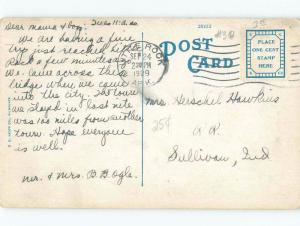 Dear mama & Boy:
We are having a fine
trip just reached Little
Rock a few minutes ago
We came across this
bridge when we came
into the city. The town
we stayed in last nite
was 100 miles from another
town. Hope everyone
is well.
Mr. & Mrs. B. B. Ogle.
POST
CARD
LITTLE ROCK
SEP 24
2 30 PM
1929
ARK.
PLACE
ONE CENT
STAMP
HERE
25¢
Mrs. Herschel Hawkins
R R
Sullivan, Ind